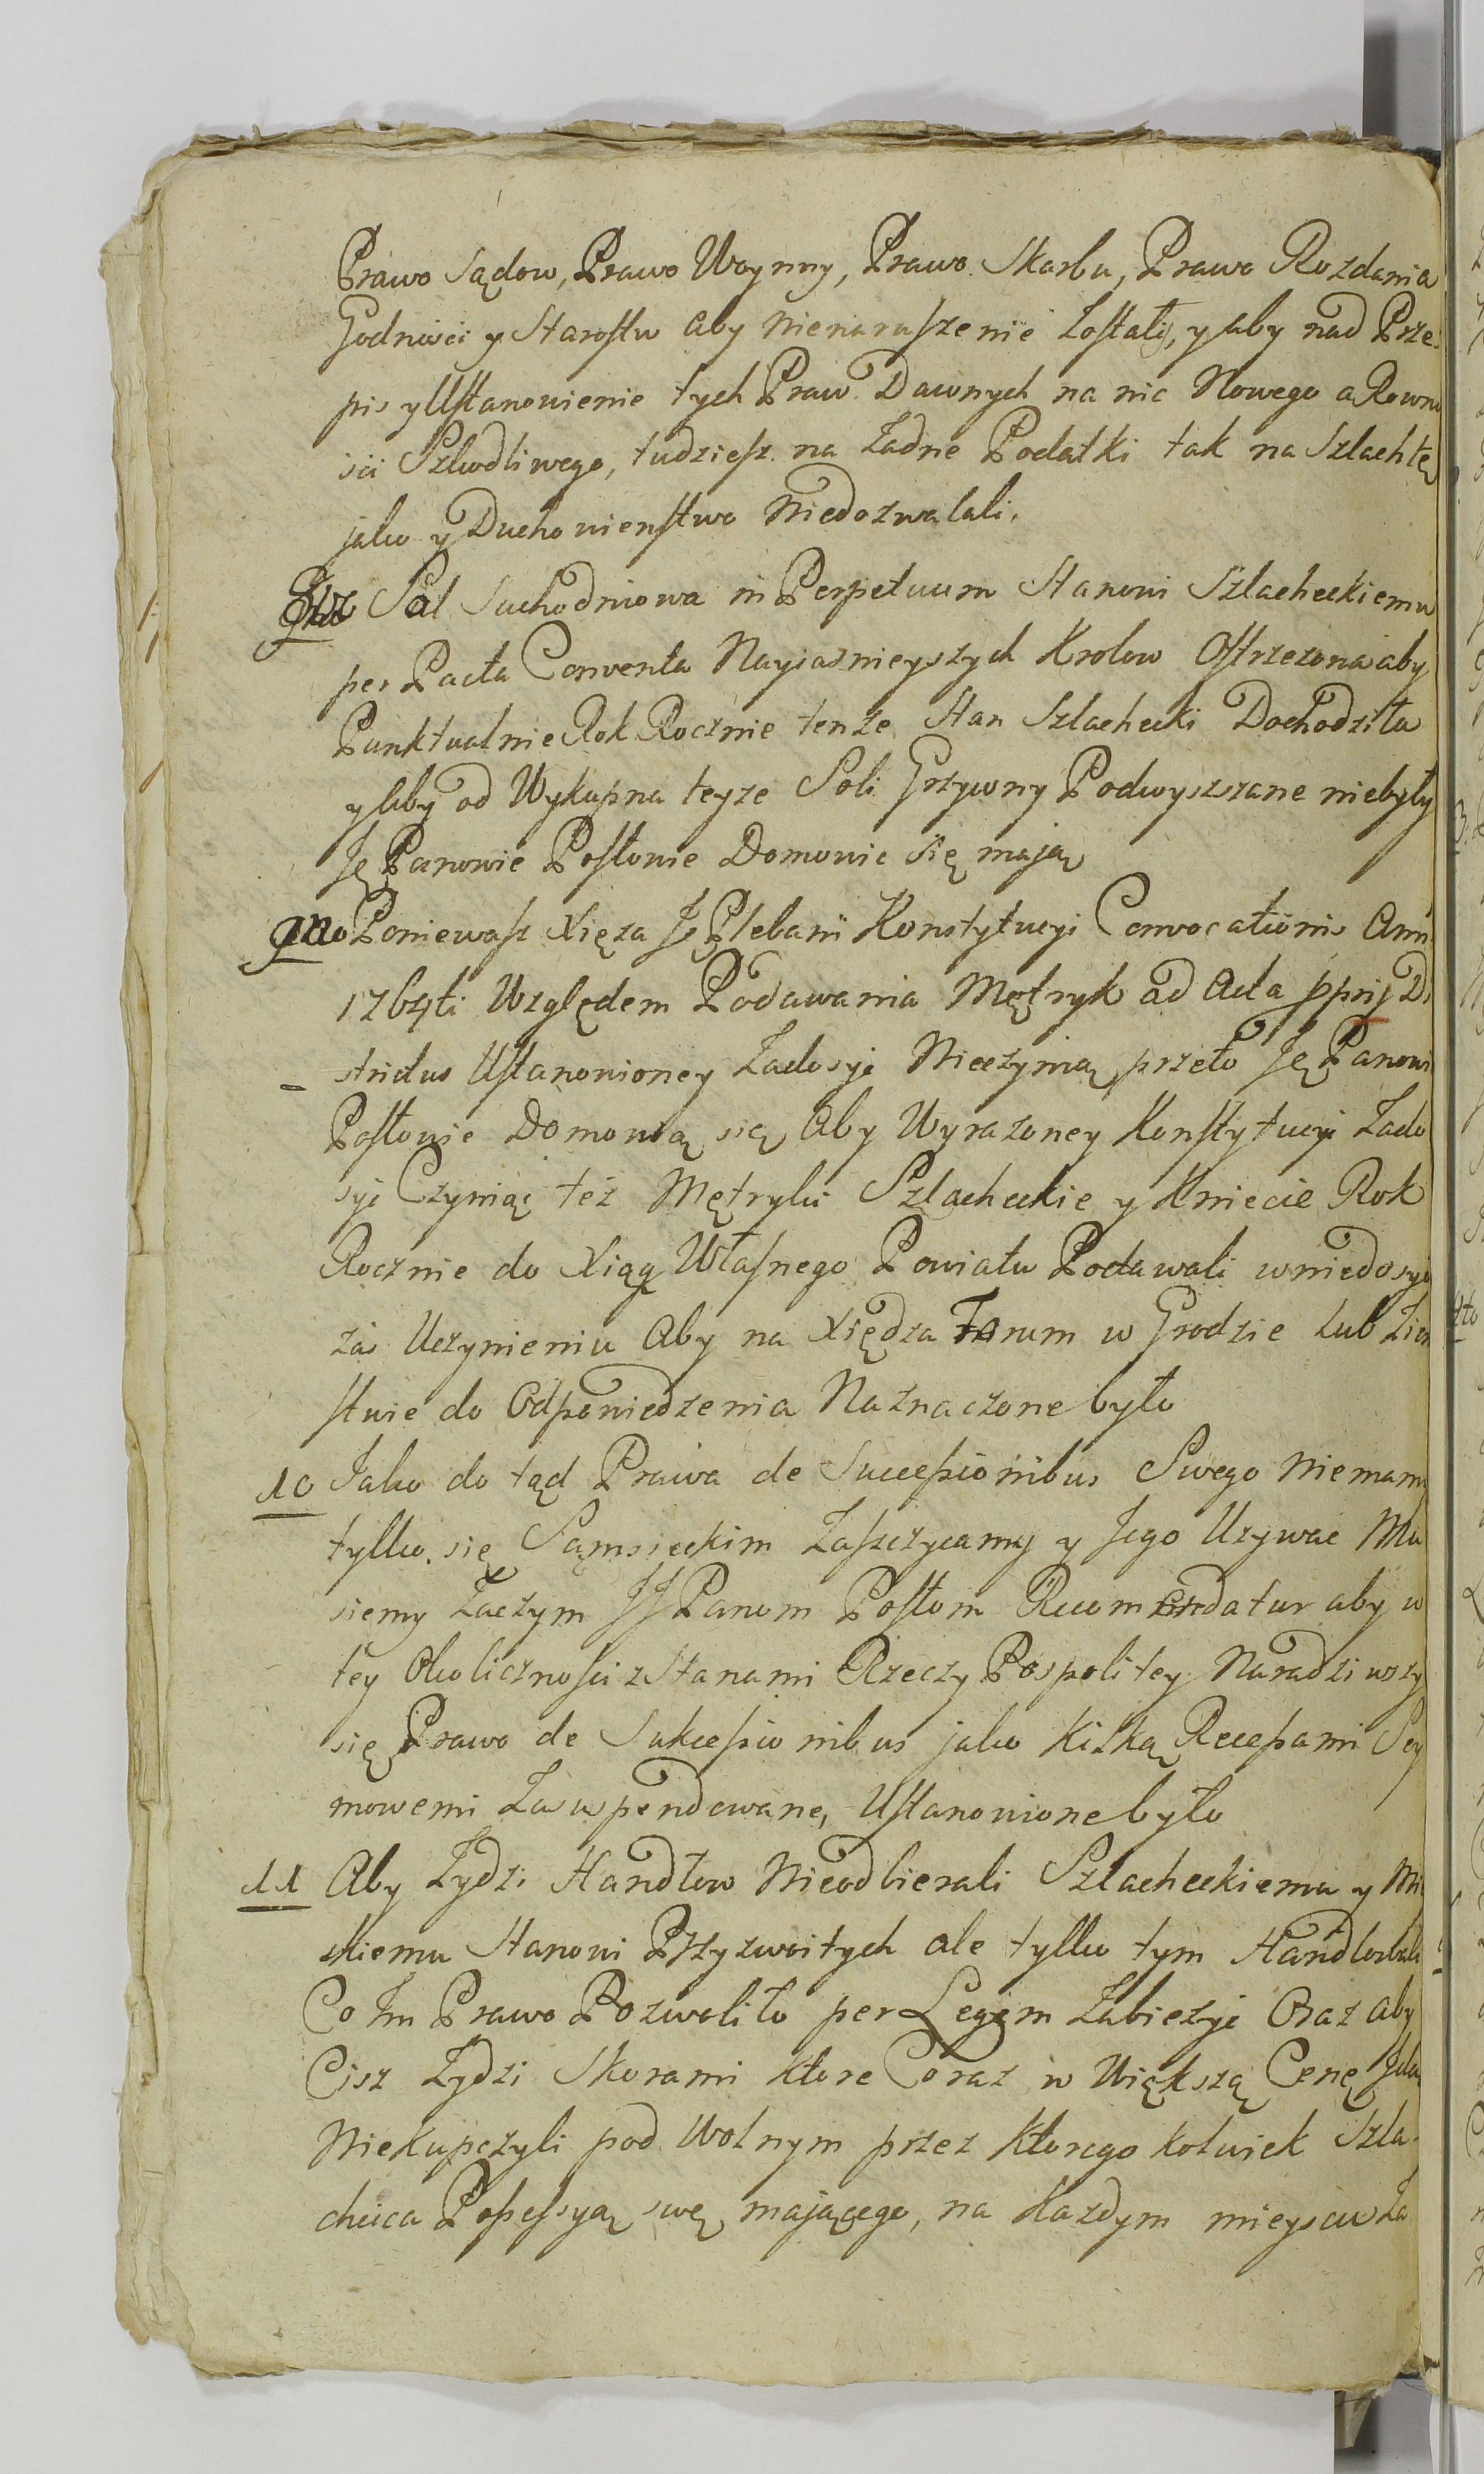 Prawo Sądow, Prawo Woynny, Prawo Skarbu, Prawo Rozdania
Godnosci y Starostw aby nienaruszenie zostały, y aby nad Prze
pis y Ustanowienie tych Praw Dawnych na nic Nowego a Rowno
sci Szkodliwego, tudziesz na żadne Podatki tak na Szlachtę
jako y Duchowienstwo Niedozwalali.
Sal Suchodniowa in Perpetuum Stanowi Szlacheckiemu
per Pacta Conventa Nayiasnieyszych Krolow Ostrzezona aby
Punktualnie Rok Rocznie tenze Stan Szlachecki Dochodziła
y aby od Wykupna teyze Soli Grzywny Podwyszszane niebyły
Ję Panowie Posłowie Domowic się mają
9no Poniewasz Xięza J Plebani Konstytucyi Convocationis Anni
1764ti Względem Podawania Mętryk ad Acta pprij Di
strictus Ustanowioney Zadosyć Nieczynią, przeto Ję Panowi
Posłowie Domowią się Aby Wyrazoney Konstytucyi Zado
syć Czyniąc też Mętryki Szlacheckie y Kmiecie Rok
Rocznie do Xiąg Własnego Powiatu Podawali w niedosyć
zas Uczynieniu Aby na Xiędza Forum w Grodzie lub Ziem
stwie do Odpowiedzenia Naznaczone było
10 Jako do tąd Prawa de Successionibus Swego Niemamy
tylko się Sąmsieckim Zaszczycamy y Jego Uzywac Mu
siemy Zaczym JJ Panom Posłom Recomendatur aby w
tey Okolicznosci z Stanami Rzeczy Pospolitey Naradziwszy
się Prawo de Sukcessionibus jako kilką Recessami Sey
mowemi Zasuspendowane, Ustanowione było
11 Aby Zydzi Handlow Nieodbierali Szlacheckiemu y Mi
skiemu Stanowi Przyzwoitych ale tylko tym Handlowali
Co Im Prawo Pozwoliło per Legem Zabiezyć Oraz aby
Cisz Zydzi Skorami ktore Coraz w Większą Cenę Jdą
Niekupczyli pod Wolnym przez ktorego kolwiek Szla
checica Possessyą swą mającego, na Kazdym mieyscu Za